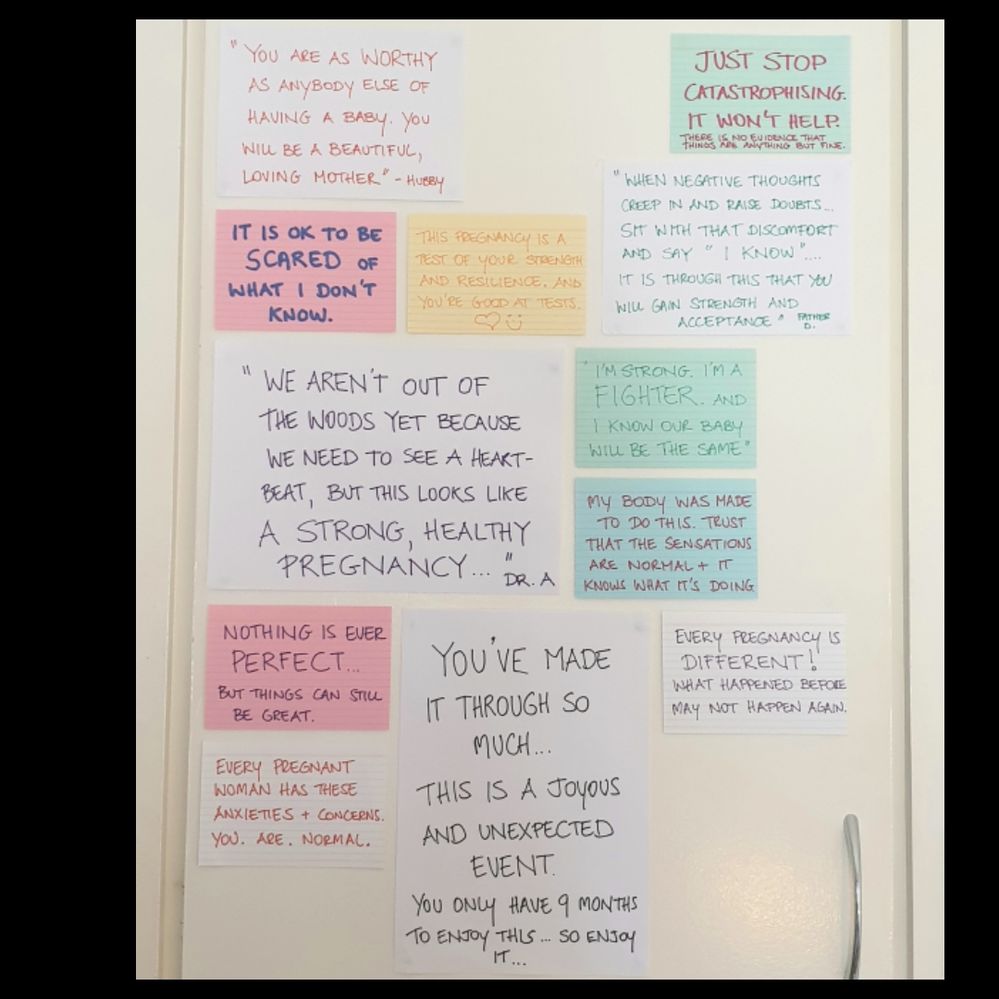 "YOU ARE AS WORTHY
AS ANYBODY ELSE OF
HAVING A BABY. YOU
WILL BE A BEAUTIFUL,
LOVING MOTHER" - HUBBY
JUST STOP
CATASTROPHISING.
IT WON'T HELP.
THERE IS NO EVIDENCE THAT
THINGS ARE ANYTHING BUT FINE.
IT IS OK TO BE
SCARED OF
WHAT I DON'T
KNOW.
THIS PREGNANCY IS A
TEST OF YOUR STRENGTH
AND RESILIENCE. AND
YOU'RE GOOD AT TESTS.
"WHEN NEGATIVE THOUGHTS
CREEP IN AND RAISE DOUBTS...
SIT WITH THAT DISCOMFORT
AND SAY "I KNOW"....
IT IS THROUGH THIS THAT YOU
WILL GAIN STRENGTH AND
ACCEPTANCE" FATHER
D.
"WE AREN'T OUT OF
THE WOODS YET BECAUSE
WE NEED TO SEE A HEART-
BEAT, BUT THIS LOOKS LIKE
A STRONG, HEALTHY
PREGNANCY..."
DR. A
"I'M STRONG. I'M A
FIGHTER. AND
I KNOW OUR BABY
WILL BE THE SAME"
MY BODY WAS MADE
TO DO THIS. TRUST
THAT THE SENSATIONS
ARE NORMAL + IT
KNOWS WHAT IT'S DOING
NOTHING IS EVER
PERFECT...
BUT THINGS CAN STILL
BE GREAT.
YOU'VE MADE
IT THROUGH SO
MUCH...
THIS IS A JOYOUS
AND UNEXPECTED
EVENT.
YOU ONLY HAVE 9 MONTHS
TO ENJOY THIS... SO ENJOY
IT...
EVERY PREGNANCY IS
DIFFERENT!
WHAT HAPPENED BEFORE
MAY NOT HAPPEN AGAIN.
EVERY PREGNANT
WOMAN HAS THESE
ANXIETIES + CONCERNS.
YOU. ARE. NORMAL.